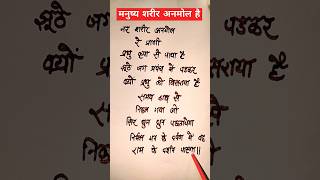 मनुष्य शरीर अनमोल है
नर शरीर अनमोल
रे प्राणी
प्रभु कृपा से पाया है
झूठे जग प्रपंच में पड़कर
क्यों प्रभु को बिसराया है
समय हाथ से
निकल गया जो
सिर धुन धुन पछतायेगा
निर्मल मन के दर्पण में वह
राम के दर्शन पायेगा॥